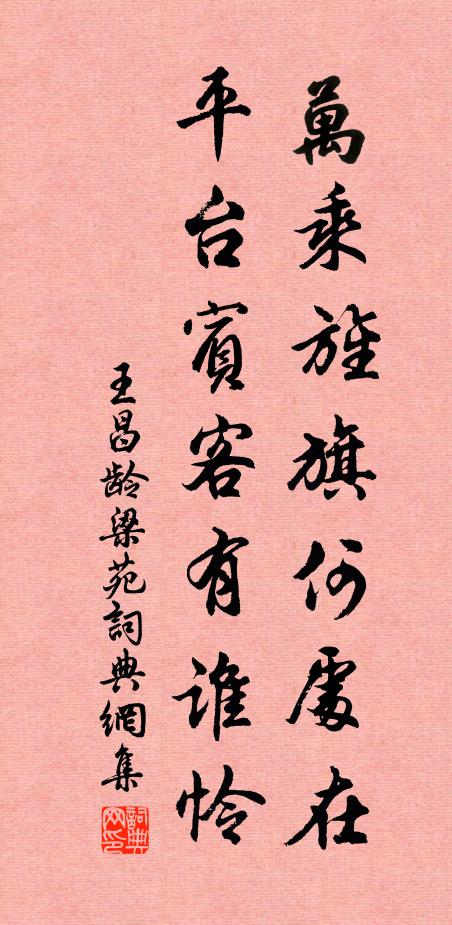 萬乘旌旗何處在
平台賓客有誰怜
王昌龄梁苑詞典網集
詞典網印